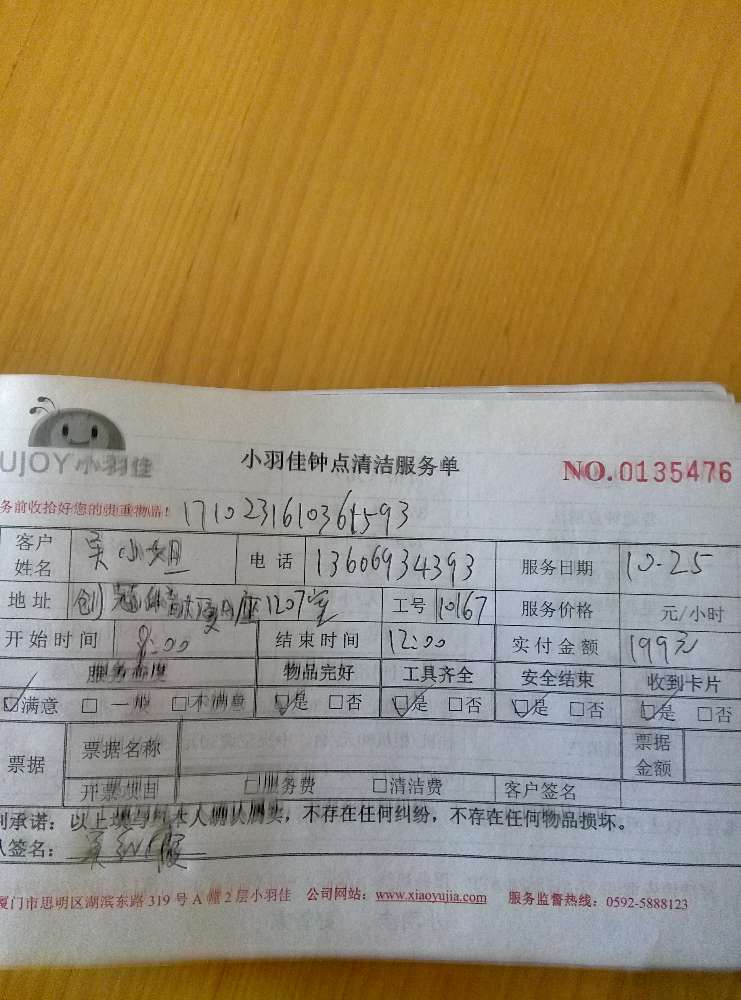 UJOY小羽佳
小羽佳钟点清洁服务单 NO.0135476
务前收拾好您的贵重物品!
客户姓名 吴小姐 电话 13606934393 服务日期 10-25
地址 创冠 大厦 座1207室 工号 10167 服务价格 元/小时
开始时间 8:00 结束时间 12:00 实付金额 199元
服务态度 物品完好 工具齐全 安全结束 收到卡片
☑满意 □一般 □不满意 ☑是 □否 ☑是 □否 ☑是 □否 ☑是 □否
票据 票据名称 票据金额
开票项目 □服务费 □清洁费 客户签名
承诺:以上 本人确认属实,不存在任何纠纷,不存在任何物品损坏。
签名:
厦门市思明区湖滨东路 319 号 A 幢 2 层小羽佳 公司网站:www.xiaoyujia.com 服务监督热线:0592-5888123